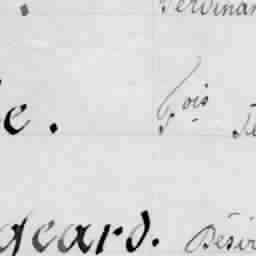 Ferdinan
e. Fois Fé
geard. Désir